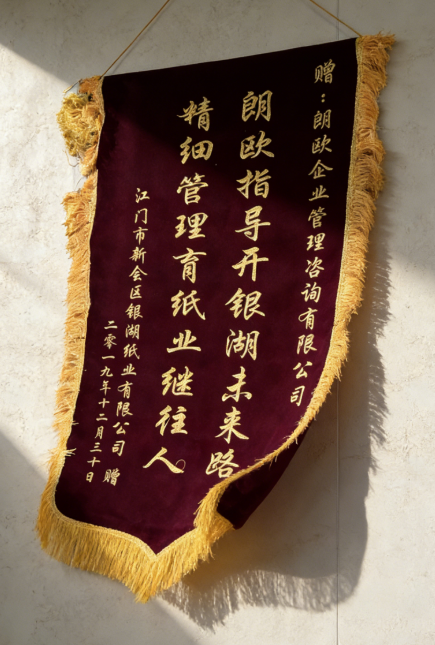 赠：朗欧企业管理咨询有限公司
朗欧指导开银湖未来路
精细管理育纸业继往人
江门市新会区银湖纸业有限公司 赠
二零一九年十二月三十日